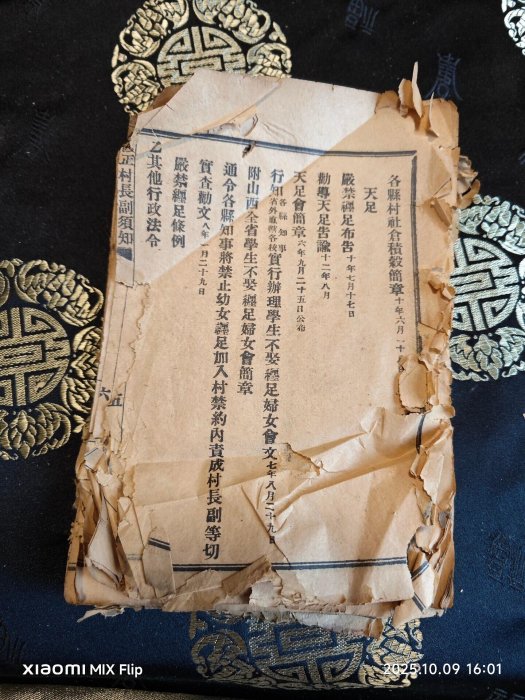 各縣村社倉積穀簡章十年六月一十
天足
嚴禁纏足布告十年七月十七日
勸導天足告諭十二年八月
天足會簡章六年九月二十五日公布
行知各縣知事省外廳暨各校實行辦理學生不娶纏足婦女會文七年八月二十九日
附山西全省學生不娶纏足婦女會簡章
通令各縣知事將禁止幼女纏足加入村禁約內責成村長副等切
實查勸文八年一月二十九日
嚴禁纏足條例
乙其他行政法令
正村長副須知
六五
XIAOMI MIX Flip
2025.10.09 16:01